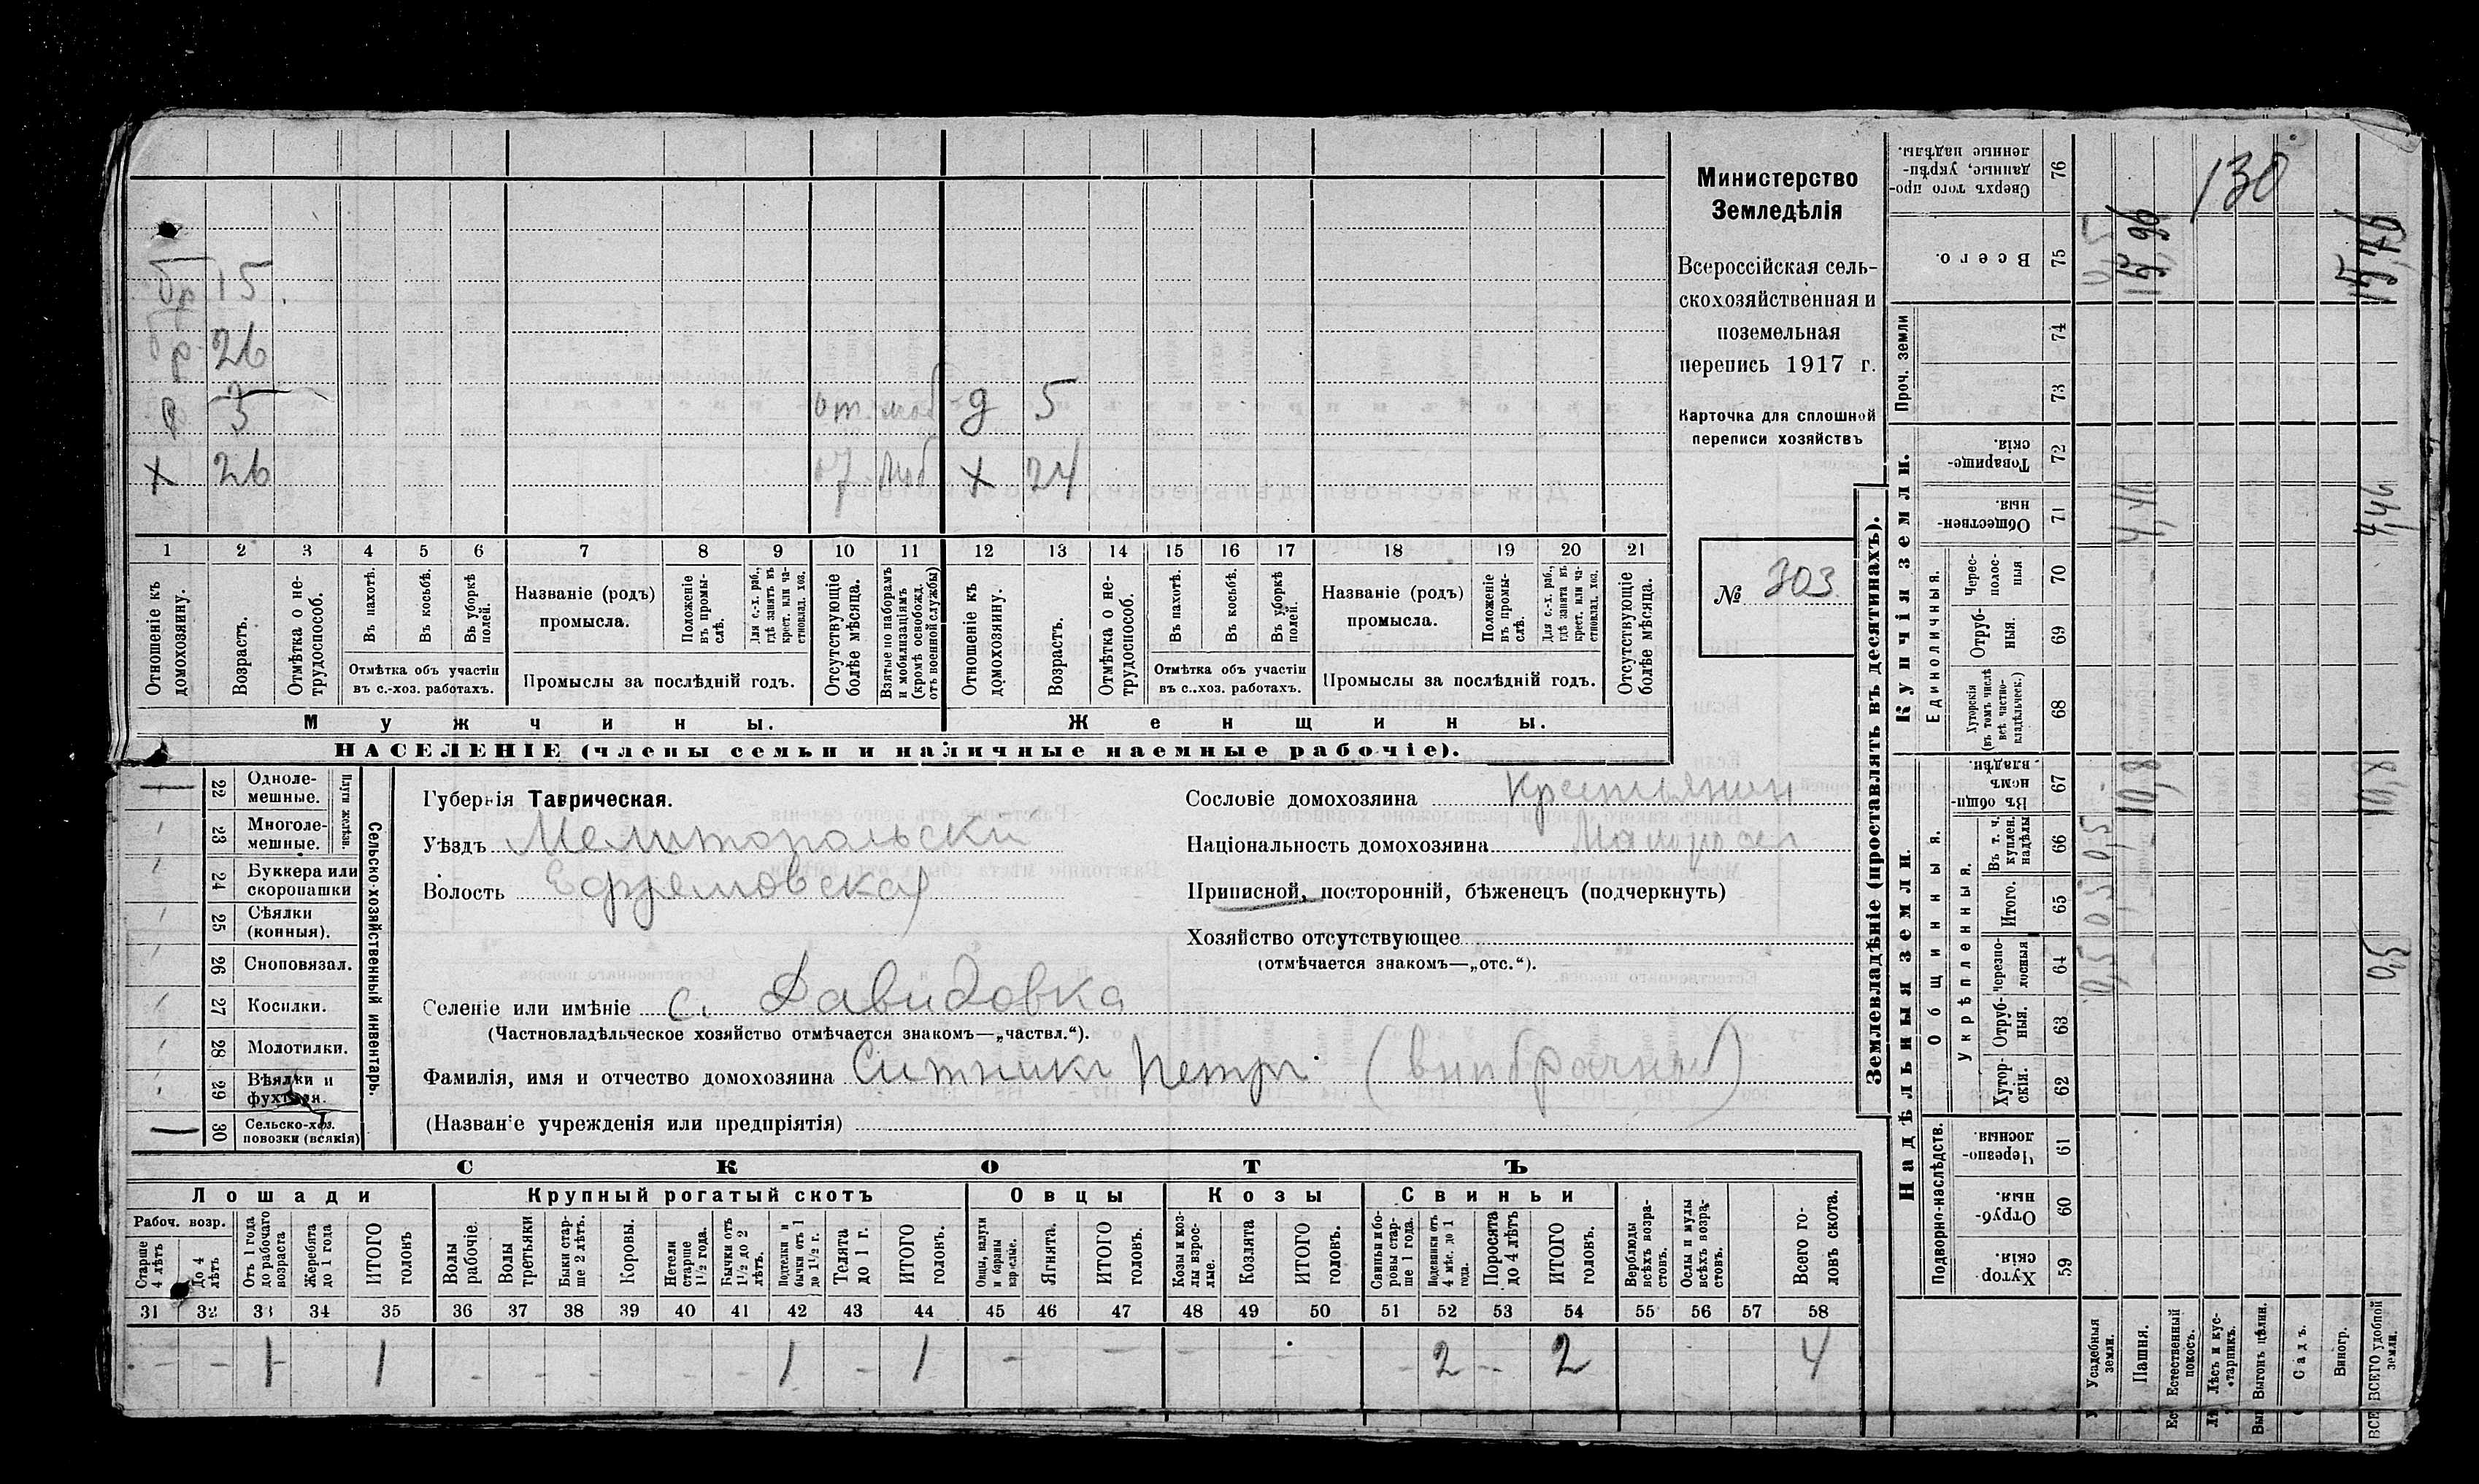 Министерство
Земледѣлія
Всероссійская сель-
скохозяйственная и
поземельная
перепись 1917 г.
Карточка для сплошной
переписи хозяйствъ
№ 303
бр 15
бр 26
3
х 26
от. моб
д 5
х 24
1 2 3 4 5 6 7 8 9 10 11 12 13 14 15 16 17 18 19 20 21
Отношеніе къ домохозяину.
Возрастъ.
Отмѣтка о не-трудоспособ.
Въ пахотѣ.
Въ косьбѣ.
Въ уборкѣ полей.
Отмѣтка объ участіи
въ с.-хоз. работахъ.
Названіе (родъ)
промысла.
Положеніе въ промы-слѣ.
Для с.-х. раб., гдѣ занятъ въ крест. или ча-стновлад. хоз.
Промыслы за послѣдній годъ.
Отсутствующіе болѣе мѣсяца.
Взятые по наборамъ и мобилизаціямъ (кромѣ освобожд. отъ военной службы)
Отношеніе къ домохозяину.
Возрастъ.
Отмѣтка о не-трудоспособ.
Въ пахотѣ.
Въ косьбѣ.
Въ уборкѣ полей.
Отмѣтка объ участіи
въ с.-хоз. работахъ.
Названіе (родъ)
промысла.
Положеніе въ промы-слѣ.
Для с.-х. раб., гдѣ занята въ крест. или ча-стновлад. хоз.
Промыслы за послѣдній годъ.
Отсутствующіе болѣе мѣсяца.
Мужчины.
Женщины.
НАСЕЛЕНІЕ (члены семьи и наличные наемные рабочіе).
Сельско-хозяйственный инвентарь.
Плуги желѣзн.
22 Одноле-мешные.
23 Многоле-мешные.
24 Буккера или скоропашки
25 Сѣялки (конныя).
26 Сноповязал.
27 Косилки.
28 Молотилки.
29 Вѣялки и фухтеля.
30 Сельско-хоз. повозки (всякія)
Губернія Таврическая.
Уѣздъ Мелитопольски
Волость Ефремовская
Селеніе или имѣніе с. Давидовка
(Частновладѣльческое хозяйство отмѣчается знакомъ—„частвл.“).
Фамилія, имя и отчество домохозяина Ситникъ Петръ
(Названіе учрежденія или предпріятія)
Сословіе домохозяина Крестьянин
Національность домохозяина Малоросъ
Приписной, посторонній, бѣженецъ (подчеркнуть)
Хозяйство отсутствующее
(отмѣчается знакомъ—„отс.“).
СКОТЪ
Лошади
Крупный рогатый скотъ
Овцы
Козы
Свиньи
Рабоч. возр.
Старше 4 лѣтъ
До 4 лѣтъ
Отъ 1 года до рабочаго возраста
Жеребята до 1 года
ИТОГО головъ
Волы рабочіе.
Волы третьяки
Быки стар-ше 2 лѣтъ.
Коровы.
Нетели старше 1½ года.
Бычки отъ 1½ до 2 лѣтъ.
Подтелки и бычки отъ 1 до 1½ г.
Телята до 1 г.
ИТОГО головъ.
Овцы, валухи и бараны взрослые.
Ягнята.
ИТОГО головъ.
Козы и коз-лы взрос-лые.
Козлята
ИТОГО головъ.
Свиньи и бо-ровы стар-ше 1 года.
Подсвинки отъ 4 мѣс. до 1 года.
Поросята до 4 лѣтъ
ИТОГО головъ.
Верблюды всѣхъ возра-стовъ.
Ослы и мулы всѣхъ возра-стовъ.
Всего го-ловъ скота.
31 32 33 34 35 36 37 38 39 40 41 42 43 44 45 46 47 48 49 50 51 52 53 54 55 56 57 58
- - 1 1 - - - - 1 - 1 - - - - - 2 - 2 4
Землевладѣніе (проставлять въ десятинахъ).
Надѣльныя земли.
Купчія земли.
Проч. земли
Подворно-наслѣдств.
Общинныя.
Укрѣпленныя.
Единоличныя.
Сверхъ того про-данные, укрѣп-ленные надѣлы. 76
Всего. 75
74
73
Товарище-скія. 72
Обществен-ныя 71
Черес-полос-ныя 70
Отруб-ныя. 69
Хуторскія (въ томъ числѣ всѣ частно-владѣльческ.) 68
Въ общи-номъ владѣн. 67
Въ т. ч. куплен. надѣлы 66
Итого. 65
Черезпо-лосныя 64
Отруб-ныя. 63
Хутор-скія. 62
Черезпо-лосныя 61
Отруб-ныя. 60
Хутор-скія. 59
Усадебныя земли.
Пашня.
Естественный покосъ.
Лѣсъ и кус-тарникъ.
Выгонъ цѣлин.
Садъ.
Виногр.
ВСЕГО удобной земли.
130
0,5
15,26
15,76
4,46
4,46
10,8
10,8
0,5 0,5 0,5
0,5